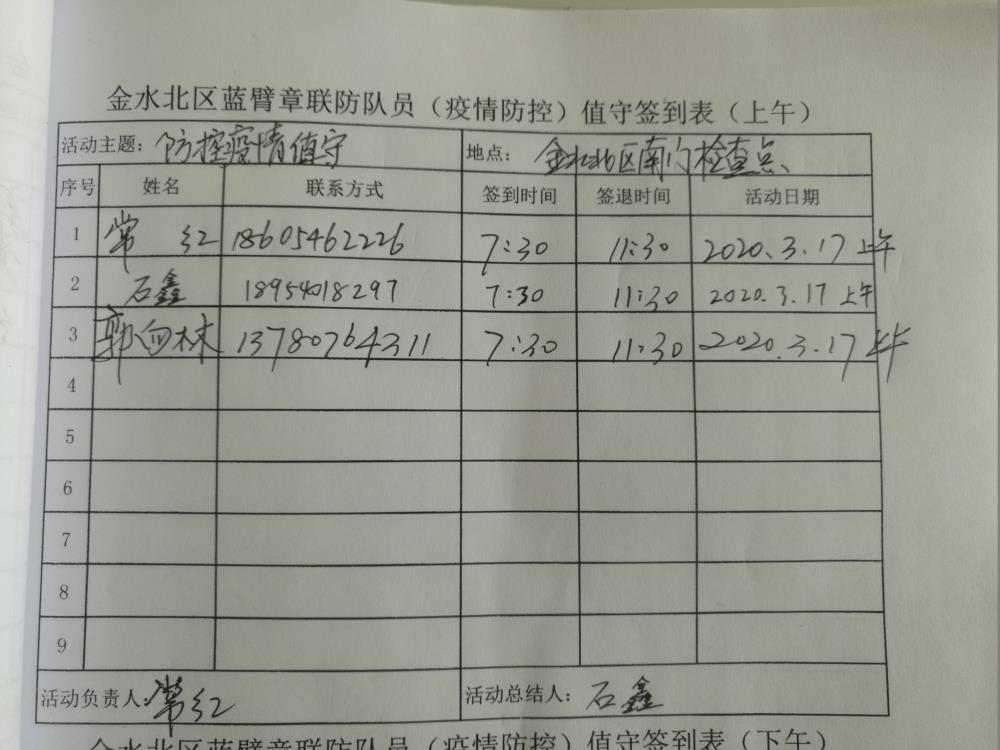 金水北区蓝臂章联防队员（疫情防控）值守签到表（上午）
活动主题：防控疫情值守 地点：金水北区南门检查点
序号 姓名 联系方式 签到时间 签退时间 活动日期
1 常红 18605462226 7:30 11:30 2020.3.17上午
2 石鑫 18954018297 7:30 11:30 2020.3.17上午
3 郭向林 13780764311 7:30 11:30 2020.3.17上午
4
5
6
7
8
9
活动负责人：常红 活动总结人：石鑫
金水北区蓝臂章联防队员（疫情防控）值守签到表（下午）